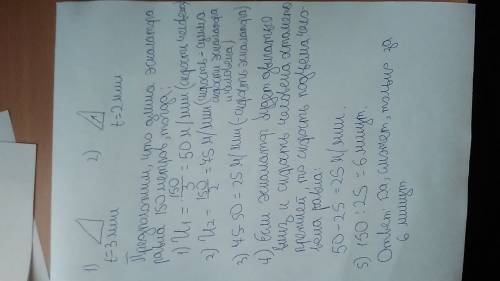 1) 2)
t=3 мин t=2 мин
Предположим, что длина эскалатора
равна 150 метров, тогда:
1) U1 = 150/3 = 50 м/мин (скорость человека)
2) U2 = 150/2 = 75 м/мин (скорость - сумма
скорости эскалатора
и человека)
3) 75-50 = 25 м/мин (-скорость эскалатора)
4) Если эскалатор будет двигаться
вниз и скорость человека останется
прежней, то скорость подъема чело-
века равна:
50-25 = 25 м/мин.
5) 150 : 25 = 6 минут.
Ответ: Да, сможет, только за
6 минут.